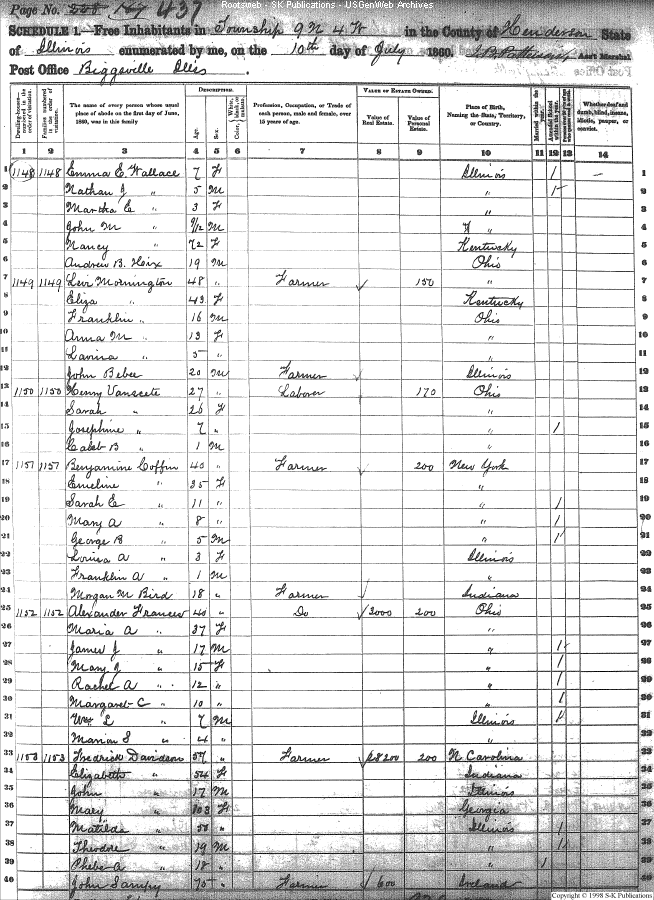 Rootsweb - SK Publications - USGenWeb Archives
Page No. 437
SCHEDULE 1.—Free Inhabitants in Township 9 N 4 W in the County of Henderson State
of Illinois enumerated by me, on the 10th day of July 1860. Ass't Marshal
Post Office Biggsville Ills
Dwelling-houses numbered in the order of visitation. Families numbered in the order of visitation. The name of every person whose usual place of abode on the first day of June, 1860, was in this family DESCRIPTION. Age. Sex. Color Profession, Occupation, or Trade of each person, male and female, over 15 years of age. VALUE OF ESTATE OWNED. Value of Real Estate. Value of Personal Estate. Place of Birth, Naming the State, Territory, or Country. Married within the year. Attended School within the year. Whether deaf and dumb, blind, insane, idiotic, pauper, or convict.
1 2 3 4 5 6 7 8 9 10 11 12 13 14
1 1148 1148 Emma E. Wallace 7 F Illinois 1 — 1
2 Nathan J " 5 M " 1 2
3 Martha E " 3 F " 3
4 John M " 9/12 M " 4
5 Nancy " 72 F Kentucky 5
6 Andrew B. 19 M Ohio 6
7 1149 1149 Levi Mornington 48 " Farmer 150 " 7
8 Eliza " 43 F Kentucky 8
9 Franklin " 16 M Ohio 9
10 Anna M " 13 F " 10
11 Lavina " 5 " " 11
12 John Bebee 20 M Farmer Illinois 12
13 1150 1150 Henry 27 " Laborer 170 Ohio 13
14 Sarah " 26 F " 14
15 Josephine " 7 " " 1 15
16 Caleb B " 1 M " 16
17 1151 1151 Benjamine Coffin 40 " Farmer 200 New York 17
18 Emeline " 35 F " 18
19 Sarah E " 11 " " 1 19
20 Mary A " 8 " " 1 20
21 George B " 5 M " 1 21
22 Louisa A " 3 F Illinois 22
23 Franklin A " 1 M " 23
24 Morgan M Bird 18 " Farmer Indiana 24
25 1152 1152 Alexander Francis 40 " Do 2000 200 Ohio 25
26 Maria A " 37 F " 26
27 James J " 17 M " 1 27
28 Mary J " 15 F " 1 28
29 Rachel A " 12 " " 1 29
30 Margaret C " 10 " " 1 30
31 Wm L " 7 M Illinois 1 31
32 Marion S " 4 " " 32
33 1153 1153 Fredrick Davidson 57 " Farmer 8200 200 N Carolina 33
34 Elizabeth " 54 F Indiana 34
35 John " 17 M Illinois 35
36 Mary " 103 F Georgia 36
37 Matilda " " Illinois 1 37
38 Theodore " 19 M " 1 38
39 Phebe A " 18 " " 1 39
40 John 75 " Farmer 600 Ireland 40
Copyright © 1998 S-K Publications